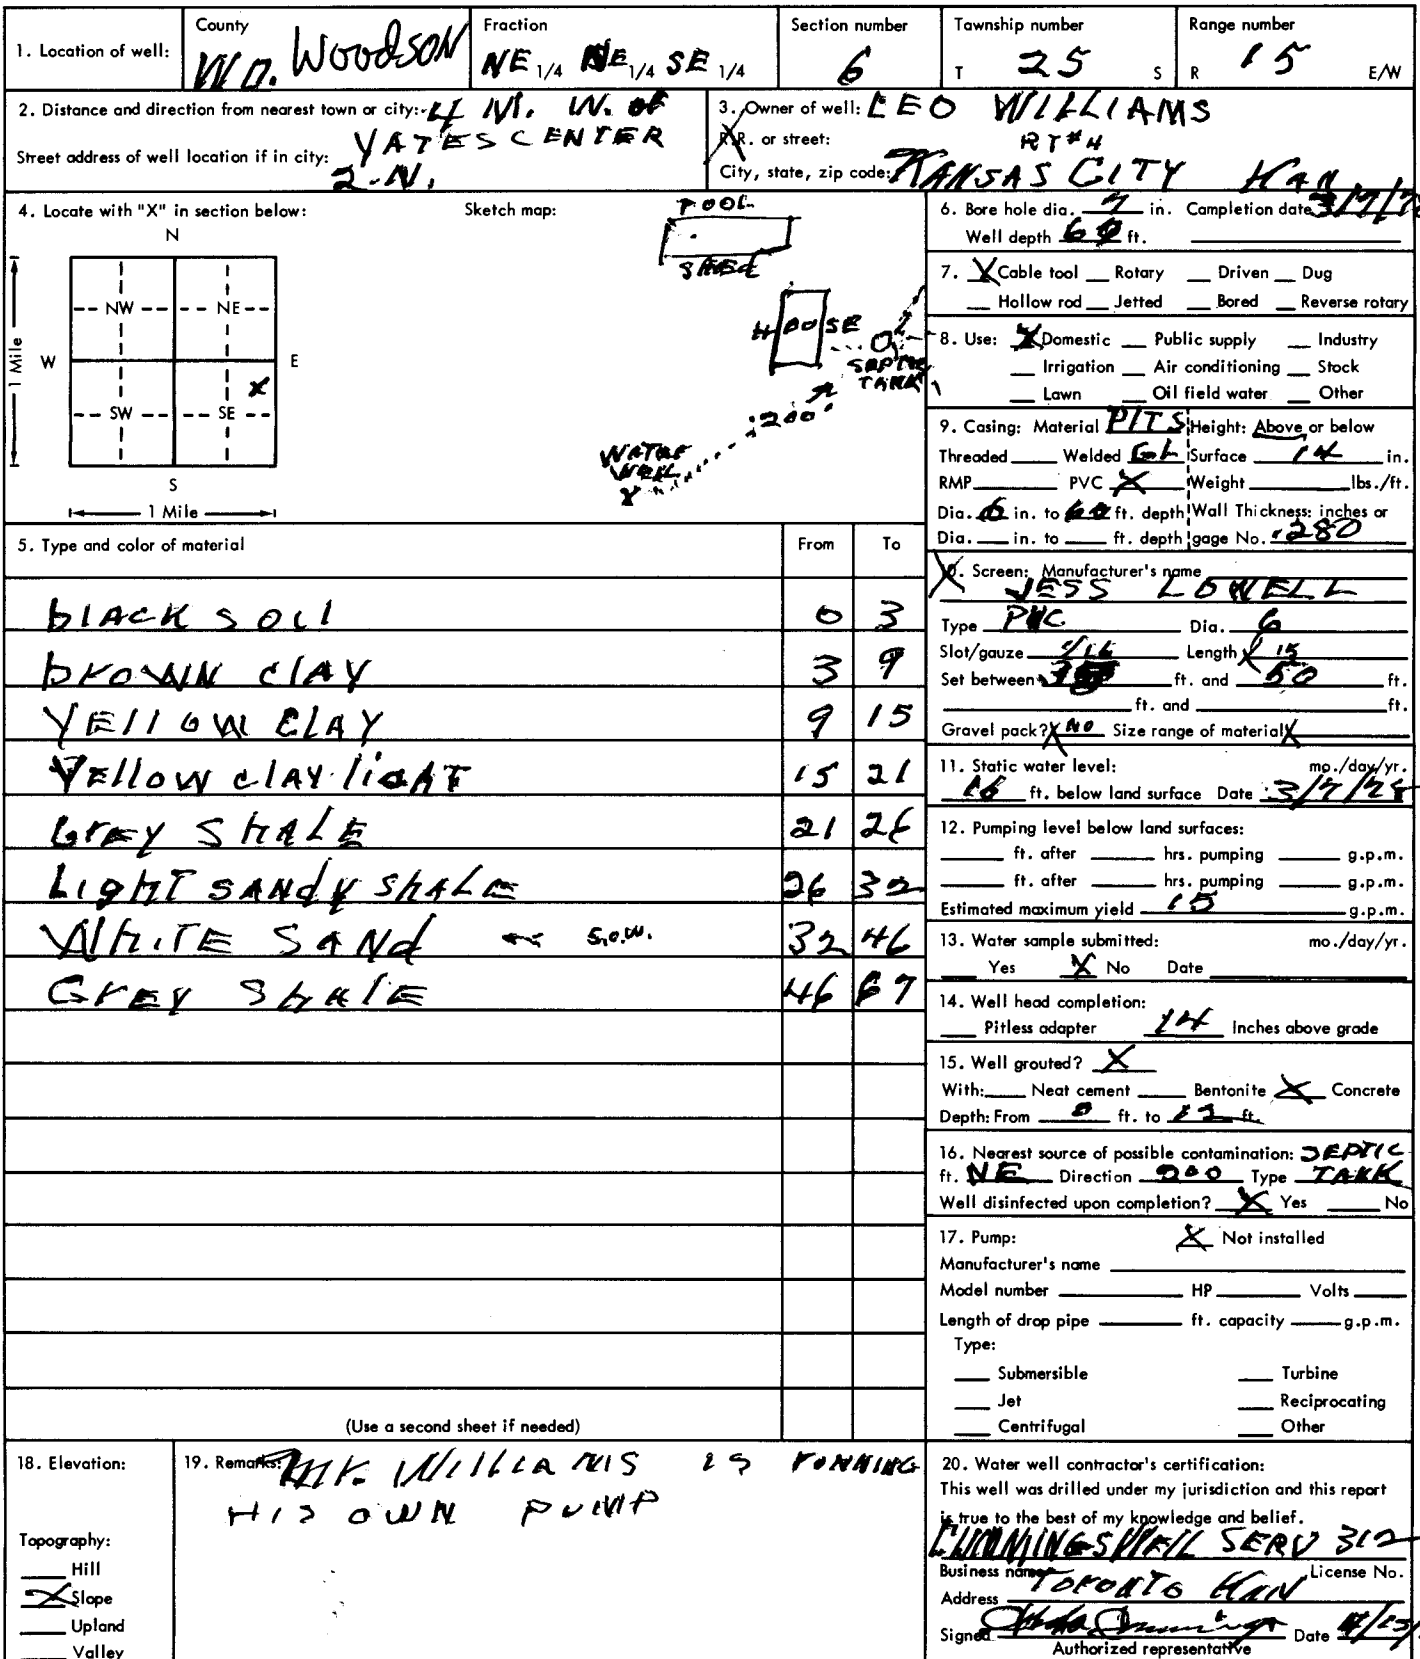 1. Location of well:
County
Wo. Woodson
Fraction
NE 1/4 NE 1/4 SE 1/4
Section number
6
Township number
T 25 S
Range number
R 15 E/W
2. Distance and direction from nearest town or city: 4 M. W. of
YATES CENTER
Street address of well location if in city:
2-N.
3. Owner of well: LEO WILLIAMS
R.R. or street: RT #4
City, state, zip code: KANSAS CITY KAN
4. Locate with "X" in section below:
N
NW NE
W E
X
SW SE
S
1 Mile
1 Mile
Sketch map:
POOL
SHED
HOUSE
SEPTIC
TANK
200'
WATER
WELL
X
5. Type and color of material From To
black soil 0 3
brown clay 3 9
Yellow clay 9 15
Yellow clay light 15 21
Grey Shale 21 26
Light sandy shale 26 32
White Sand S.O.W. 32 46
Grey Shale 46 67
(Use a second sheet if needed)
6. Bore hole dia. 7 in. Completion date 3/7/78
Well depth 60 ft.
7. X Cable tool Rotary Driven Dug
Hollow rod Jetted Bored Reverse rotary
8. Use: X Domestic Public supply Industry
Irrigation Air conditioning Stock
Lawn Oil field water Other
9. Casing: Material PITS Height: Above or below
Threaded Welded GL Surface 14 in.
RMP PVC X Weight lbs./ft.
Dia. 6 in. to 60 ft. depth Wall Thickness: inches or
Dia. in. to ft. depth gage No. .280
10. Screen: Manufacturer's name
JESS LOWELL
Type PVC Dia. 6
Slot/gauze 1/16 Length 15
Set between ft. and 50 ft.
ft. and ft.
Gravel pack? NO Size range of material
11. Static water level: mo./day/yr.
16 ft. below land surface Date 3/7/78
12. Pumping level below land surfaces:
ft. after hrs. pumping g.p.m.
ft. after hrs. pumping g.p.m.
Estimated maximum yield 15 g.p.m.
13. Water sample submitted: mo./day/yr.
Yes X No Date
14. Well head completion:
Pitless adapter 14 Inches above grade
15. Well grouted? X
With: Neat cement Bentonite X Concrete
Depth: From 0 ft. to 12 ft.
16. Nearest source of possible contamination: SEPTIC
ft. NE Direction 200 Type TANK
Well disinfected upon completion? X Yes No
17. Pump: X Not installed
Manufacturer's name
Model number HP Volts
Length of drop pipe ft. capacity g.p.m.
Type:
Submersible Turbine
Jet Reciprocating
Centrifugal Other
18. Elevation:
Topography:
Hill
X Slope
Upland
Valley
19. Remarks: Mr. Williams is running
HIS OWN PUMP
20. Water well contractor's certification:
This well was drilled under my jurisdiction and this report
is true to the best of my knowledge and belief.
CUMMINGS WELL SERV 312
Business name License No.
Address TORONTO KAN
Signed Cummings Date 4/15/
Authorized representative